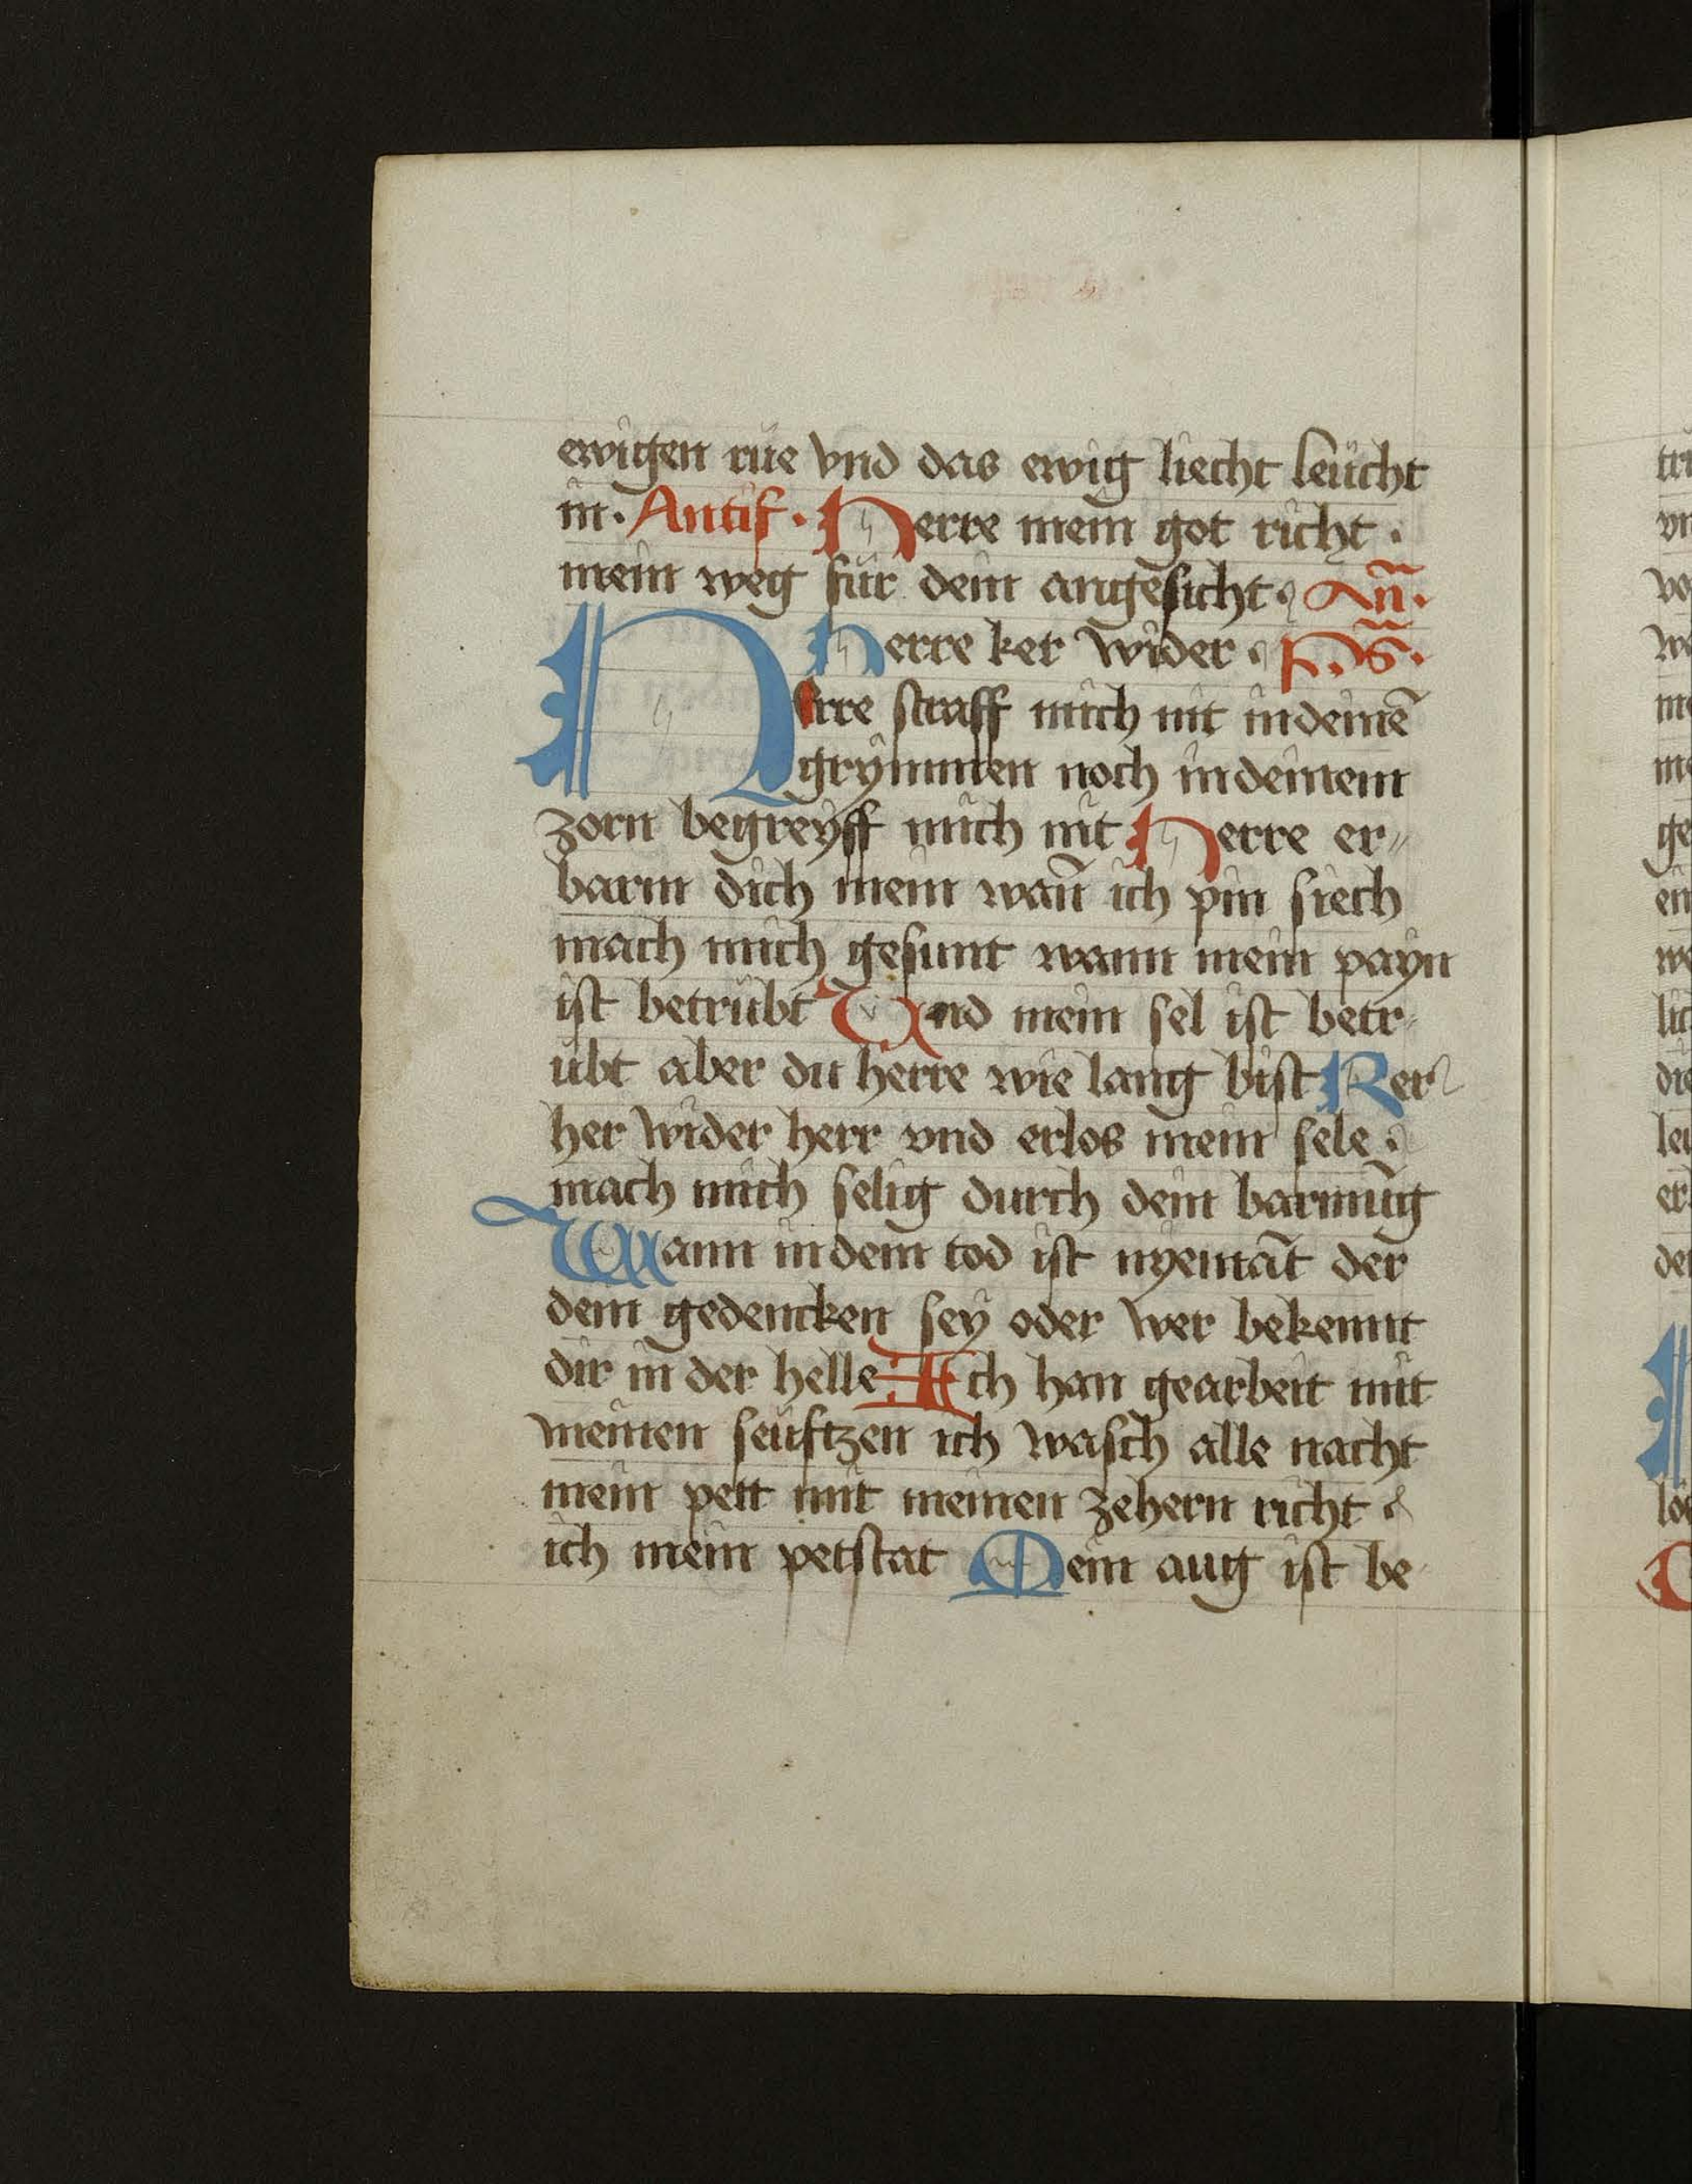 ewigen rue vnd das ewig liecht leucht
in. Antif. Herre mein got richt.
mein weg für dein angesicht. An̄.
Herre ker wider. P̄s.
Herre straff mich nit in deinē
grymmen noch in deinem
zorn begreyff mich nit Herre er-
barm dich mein wan̄ ich pin siech
mach mich gesunt wann mein payn
ist betrubt Vnd mein sel ist betr
übt aber du herre wie lang bist Ker
her wider herr vnd erlos mein sele.
mach mich selig durch dein barmūg
Wann in dem tod ist nyemāt der
dein gedencken sey oder wer bekennt
dir in der helle Ich han gearbeit mit
meinen seuftzen ich wasch alle nacht
mein pett mit meinen zehern richt
ich mein petstat Mein aug ist be